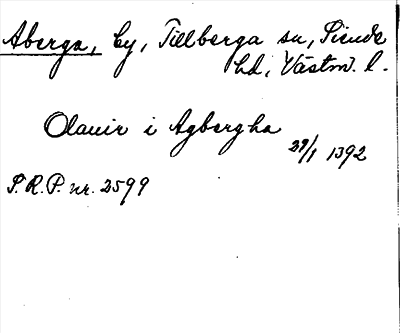 Aberga, by, Tillberga sn, Siende
hd, Västm. l.
Olauir i Agbergha
29/1 1392
S.R.P. nr. 2599